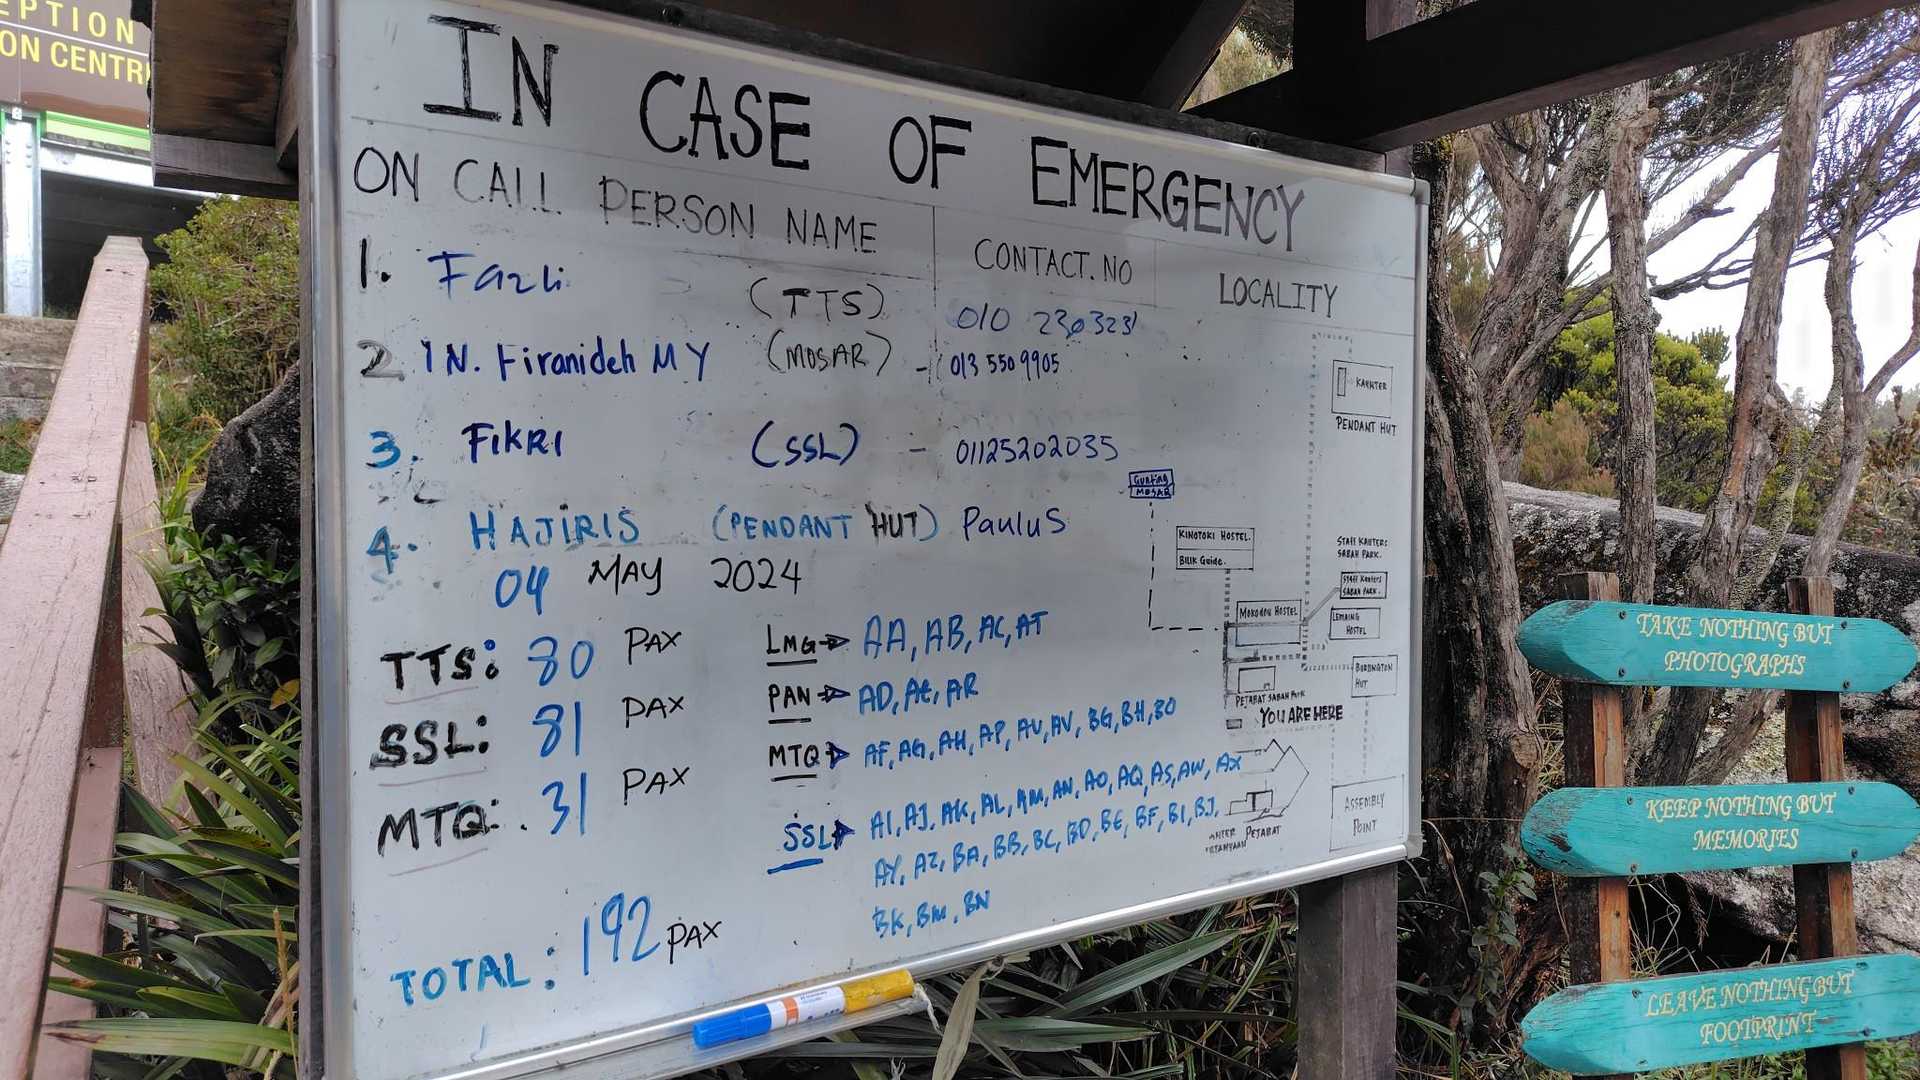 EPTION
ON CENTR
IN CASE OF EMERGENCY
ON CALL PERSON NAME CONTACT. NO LOCALITY
1. Fazli (TTS) 010 230323
2 IN. Firanideh MY (MOSAR) - 013 550 9905
3. FIKRI (SSL) - 01125202035
4. HAJIRIS (PENDANT HUT) PauluS
04 MAY 2024
TTS: 80 PAX
SSL: 81 PAX
MTQ: . 31 PAX
TOTAL: 192 PAX
LMG AA, AB, AC, AT
PAN AD, AE, AR
MTQ AF, AG, AH, AP, AU, AV, BG, BH, BO
SSL AI, AJ, AK, AL, AM, AN, AO, AQ, AS, AW, AX
AY, AZ, BA, BB, BC, BD, BE, BF, BI, BJ,
BK, BM, BN
KAUNTER
PENDANT HUT
GUNTING
MOSAR
KINOTOKI HOSTEL.
BILIK Guide.
STAFF KAUTERS
SABAH PARK.
STAFF KAUTERS
SABAH PARK.
MOKODOU HOSTEL
LEMAING
HOSTEL
BURLINGTON
HUT
PEJABAT SABAH PARK
YOU ARE HERE
PEJABAT
ASSEMBLY
POINT
TAKE NOTHING BUT
PHOTOGRAPHS
KEEP NOTHING BUT
MEMORIES
LEAVE NOTHING BUT
FOOTPRINT